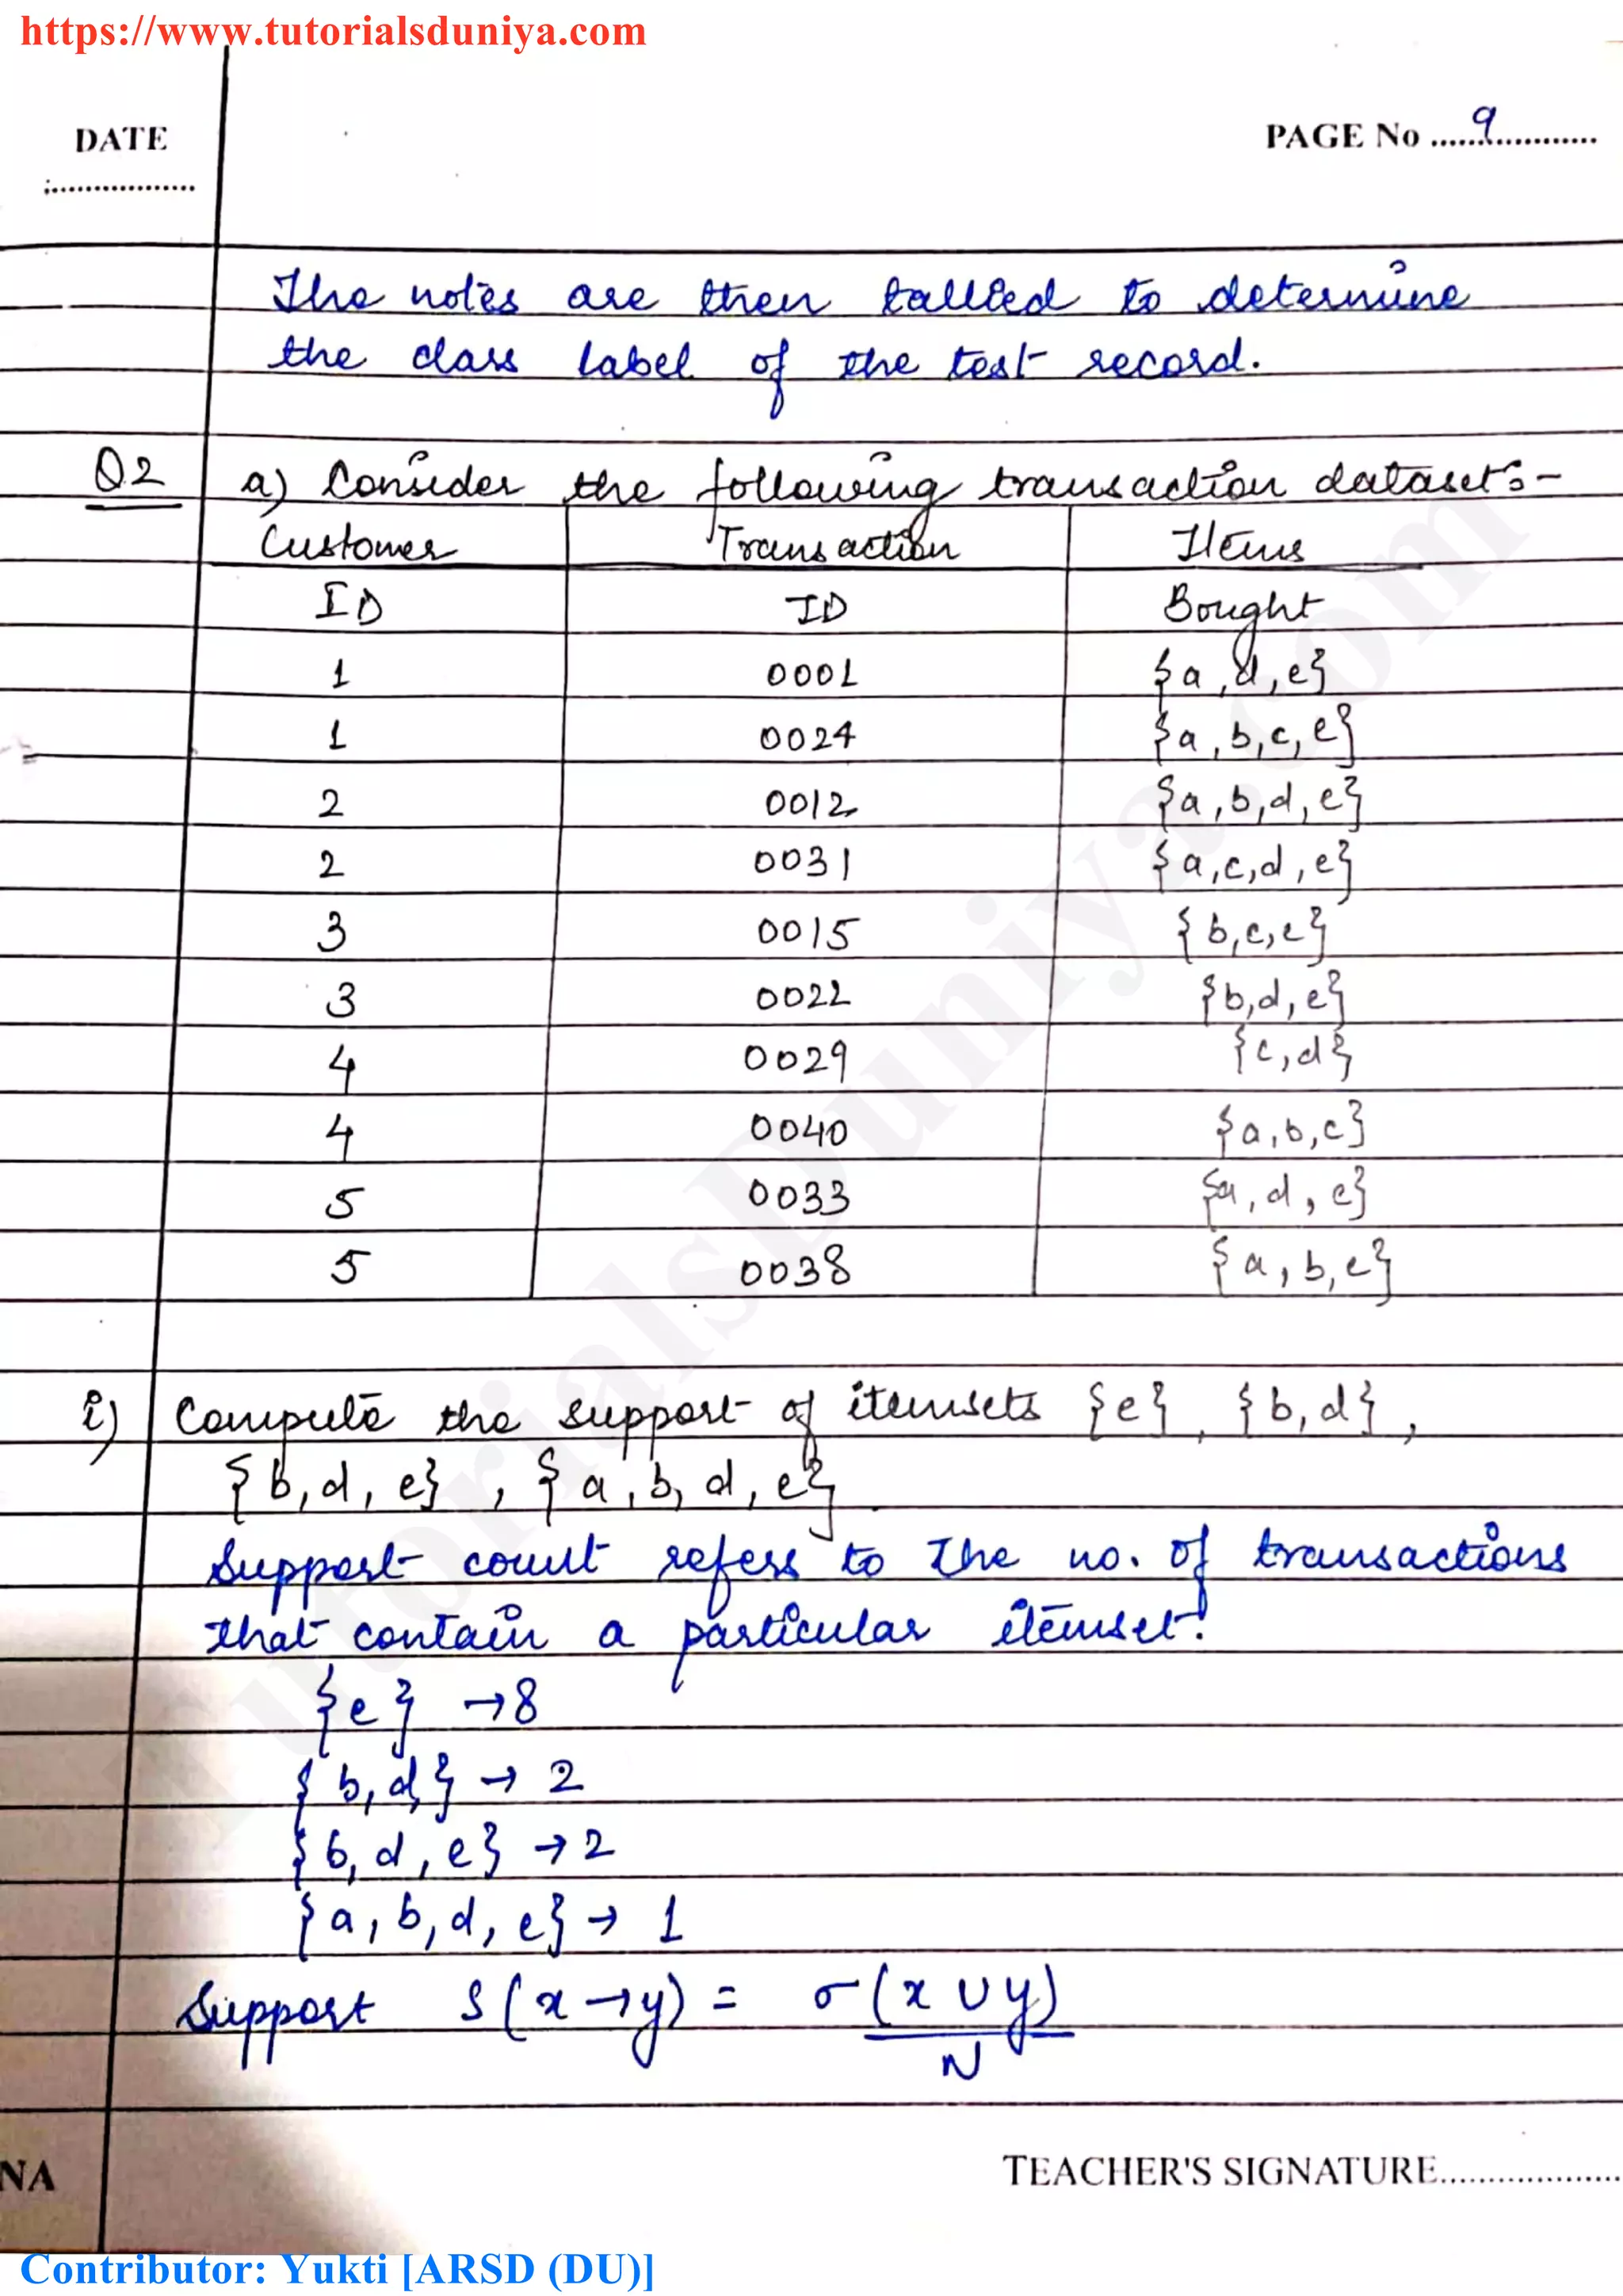 https://www.tutorialsduniya.com
DATE
PAGE No ......9............
The notes are then tallied to determine
the class label of the test record.
Q2 a) Consider the following transaction dataset:-
Customer Transaction Items
ID ID Bought
1 0001 {a, d, e}
1 0024 {a, b, c, e}
2 0012 {a, b, d, e}
2 0031 {a, c, d, e}
3 0015 {b, c, e}
3 0022 {b, d, e}
4 0029 {c, d}
4 0040 {a, b, c}
5 0033 {a, d, e}
5 0038 {a, b, e}
i) Compute the support of itemsets {e}, {b, d},
{b, d, e}, {a, b, d, e}
Support count refers to the no. of transactions
that contain a particular itemset.
{e} → 8
{b, d} → 2
{b, d, e} → 2
{a, b, d, e} → 1
Support S(x → y) = σ(x ∪ y)
N
NA
TEACHER'S SIGNATURE....................
Contributor: Yukti [ARSD (DU)]
tutorialsDuniya.com